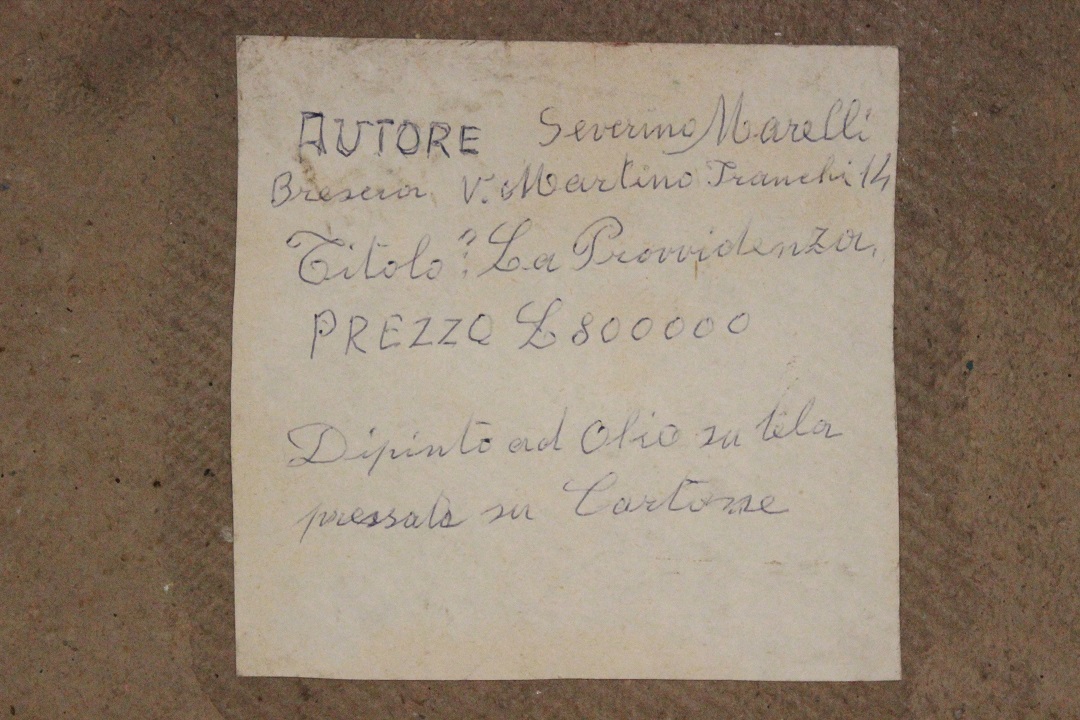 AUTORE Severino Marelli
Brescia V. Martino Franchi 14
Titolo: "La Provvidenza,
PREZZO £ 800000
Dipinto ad Olio su tela
pressata su Cartone